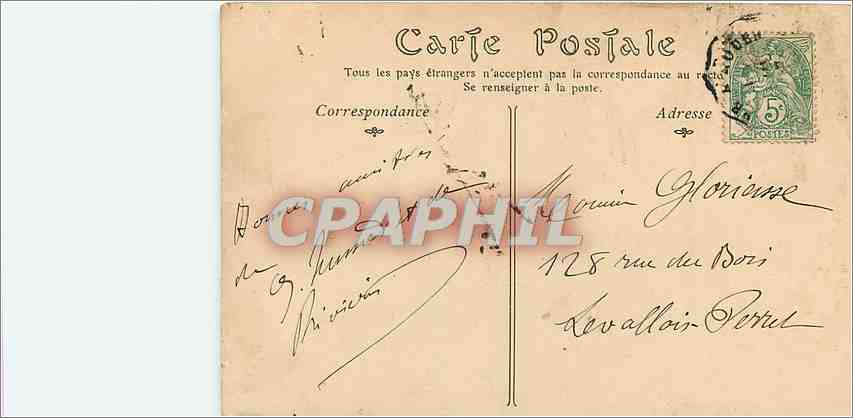 Carte Postale
Tous les pays étrangers n'acceptent pas la correspondance au recto
Se renseigner à la poste.
Correspondance
Adresse
5c
POSTES
CPAPHIL
Bonnes amitiés
de
Monsieur Glorieuse
128 rue du Bois
Levallois-Perret